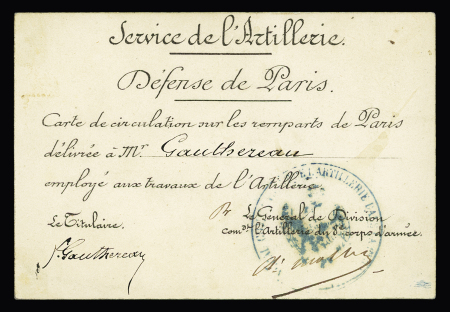 Service de l'Artillerie.
Défense de Paris.
Carte de circulation sur les remparts de Paris
délivrée à Mr Gauthereau
employé aux travaux de l'Artillerie
Le Titulaire.
Gauthereau
Pr Le Général de Division
comdt l'Artillerie du 8e corps d'armée.
L'ARTILLERIE